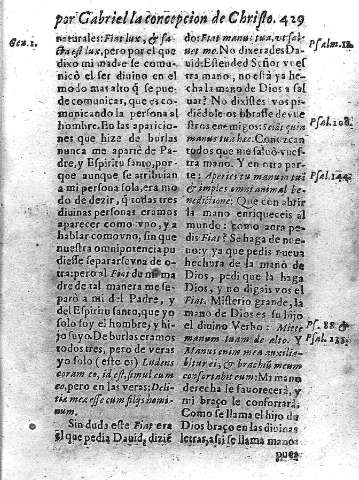 por Gabriel la concepcion de Christo. 429
Gen. 1.
naturales: Fiat lux, & fa
cta est lux, pero por el que
dixo mi madre se comu-
nicò el ser diuino en el
modo mas alto q̃ se pue
de comunicar, que es co-
municando la persona al
hombre. En las aparicio-
nes que hize de burlas
nunca me aparté de Pa-
dre, y Espiritu santo, por-
que aunque se atribuian
a mi persona sola, era mo
do de dezir, q̃ todas tres
diuinas personas eramos
aparecer como vno, y a
hablar como vno, sin que
nuestra omnipotencia pu
diesse separarse vna de o-
tra: pero al Fiat de mi ma
dre de tal manera me se-
parò a mi del Padre, y
del Espiritu santo, que yo
solo soy el hombre, y hi-
jo suyo. De burlas eramos
todos tres, pero de veras
yo solo (esto es) Ludens
coram eo, id est, simul cum
eo, pero en las veras: Deli-
tiæ meæ esse cum filijs homi-
num.
Sin duda este Fiat era
el que pedia Dauid, dizie
dos: Fiat manus tua, vt sal-
uet me. No dixerades Da-
uid: Estended Señor vues
tra mano, no està ya he-
cha la mano de Dios a sal
uar? No dixistes vos pi-
diédole os librasse de vue
stros enemigos: sciãt quia
manus tua hæc. Conozcan
todos que me saluò vues
tra mano. Y en otra par-
te: Aperis tu manum tuã
& imples omne animal be-
nedictione: Que con abrir
la mano enriqueceis al
mundo: como aora pe-
dis Fiat? Se haga de nue-
no: y ya que pedis nueua
hechura de la mano de
Dios, pedi que la haga
Dios, y no digais vos el
Fiat. Misterio grande, la
mano de Dios es su hijo
el diuino Verbo: Mitte
manum tuam de alto. Y
Manus enim mea auxilia-
bitur ei, & brachiũ meum
confortabit eum: Mi mano
derecha le fauorecerà, y
mi braço le confortarà.
Como se llama el hijo de
Dios braço en las diuinas
letras, assi se llama mano
pues
Psalm. 118.
Psal. 108.
Psal. 144.
Ps. 88. &
Psal. 143.